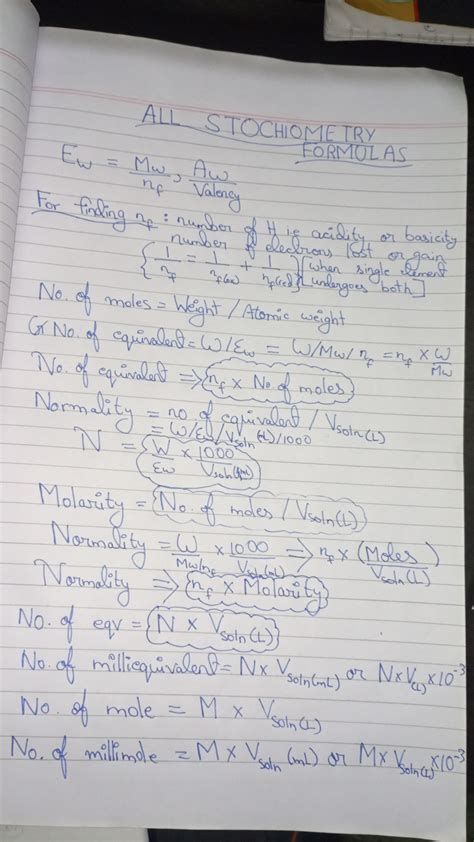 ALL STOCHIOMETRY
FORMULAS
Ew = Mw/nf , Aw/Valency
For finding nf : number of H i.e acidity or basicity
number of electrons lost or gain
{1/nf = 1/nf(ox) + 1/nf(red)} [when single element undergoes both]
No. of moles = Weight / Atomic weight
G No. of equivalent = W/Ew = W/Mw/nf = nf × W/Mw
No. of equivalent ⇒ nf × No. of moles
Normality = no of equivalent / Vsoln(L)
= W/Ew/Vsoln(L)/1000
N = W/Ew × 1000/Vsoln(mL)
Molarity = No. of moles / Vsoln(L)
Normality = W/Mw/nf × 1000/Vsoln(mL) ⇒ nf × (Moles)/Vsoln(L)
Normality ⇒ nf × Molarity
No. of eqv = N × Vsoln(L)
No. of milliequivalent = N × Vsoln(mL) or N × V(L) × 10⁻³
No. of mole = M × Vsoln(L)
No. of millimole = M × Vsoln (mL) or M × Vsoln(L) × 10⁻³